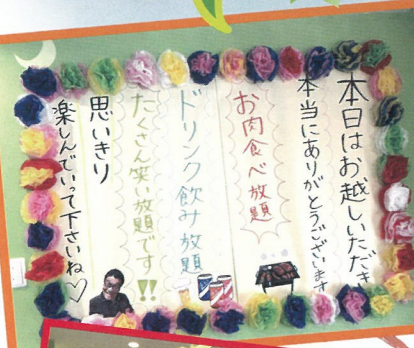 本日はお越しいただき
本当にありがとうございます
お肉食べ放題
ドリンク飲み放題
たくさん笑い放題です!!
思いきり
楽しんでいって下さいね♡